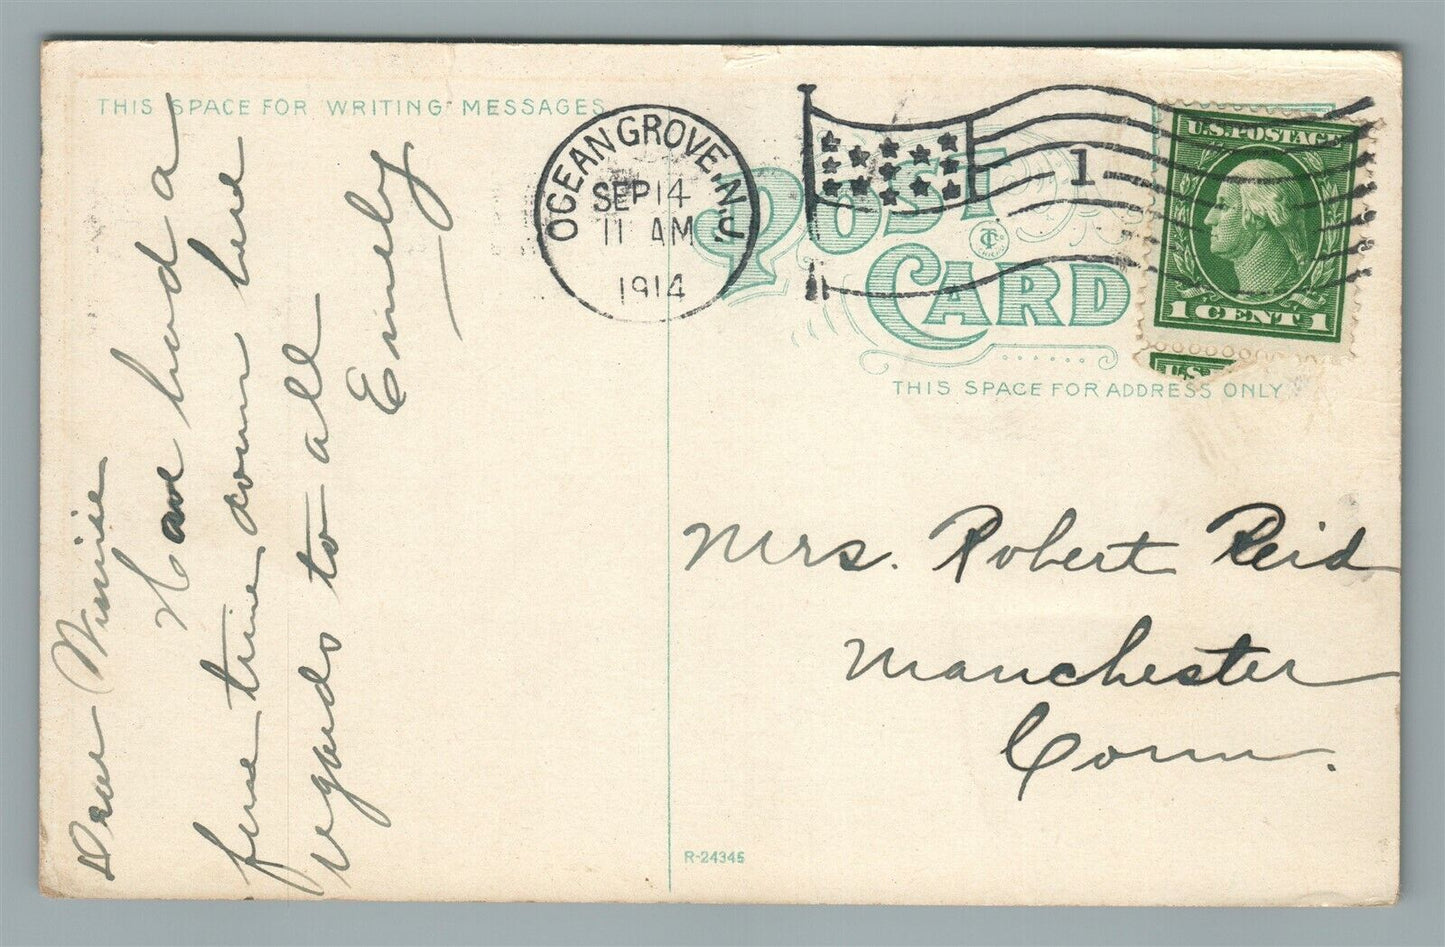 THIS SPACE FOR WRITING MESSAGES
Dear Winnie
Have had a
fine time down here
regards to all
Emely
OCEAN GROVE, N.J.
SEP 14
11 AM
1914
1
POST
CARD
THIS SPACE FOR ADDRESS ONLY
U.S. POSTAGE
1 CENT 1
U.S.
Mrs. Robert Reid
Manchester
Conn.
R-24345